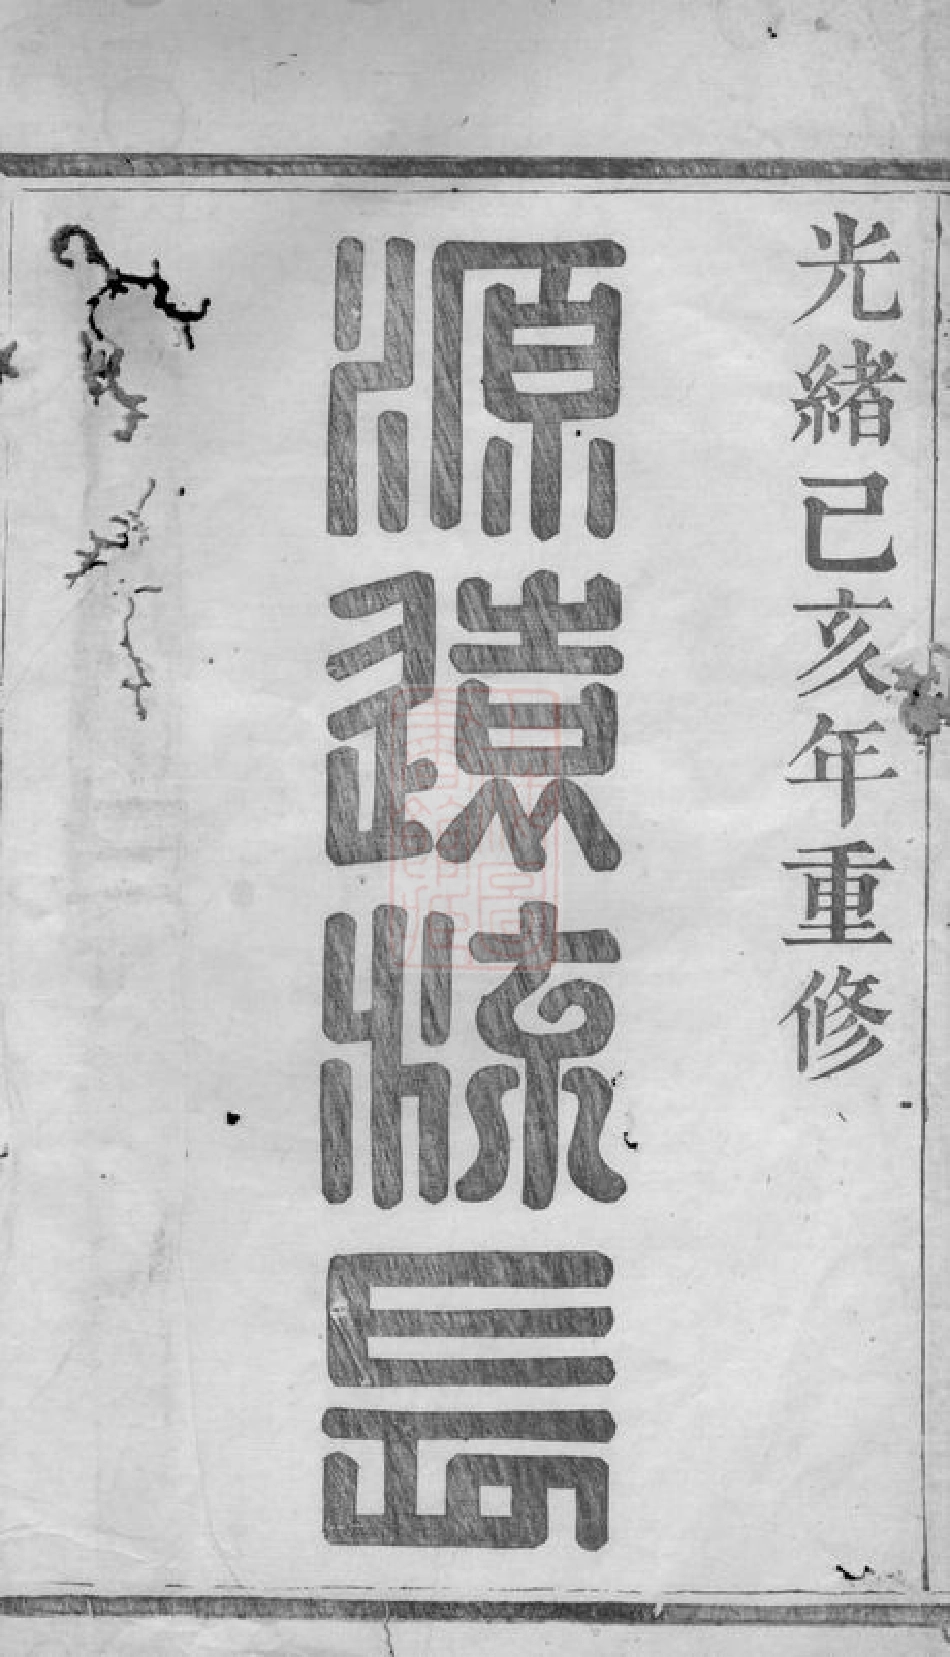 光緒己亥年重修
源遠流長